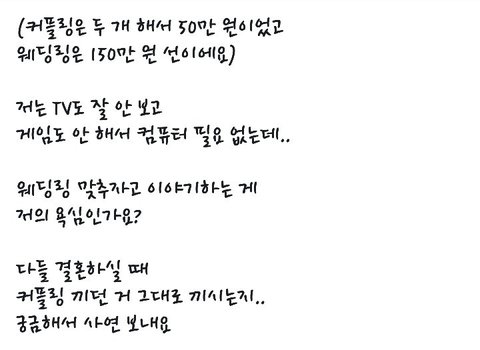 (커플링은 두 개 해서 50만 원이었고
웨딩링은 150만 원 선이에요)
저는 TV도 잘 안 보고
게임도 안 해서 컴퓨터 필요 없는데..
웨딩링 맞추자고 이야기하는 게
저의 욕심인가요?
다들 결혼하실 때
커플링 끼던 거 그대로 끼시는지..
궁금해서 사연 보내요